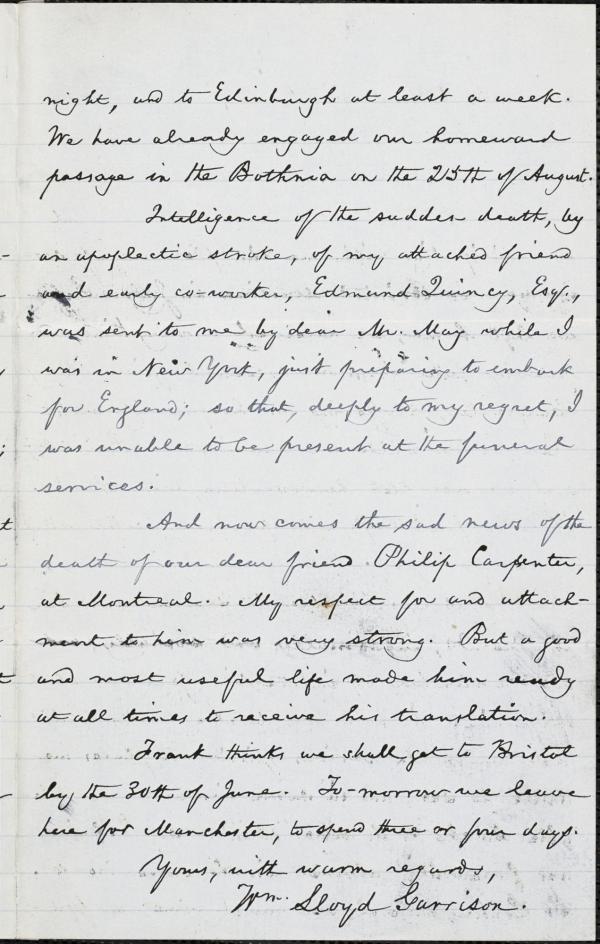 night, and to Edinburgh at least a week.
We have already engaged our homeward
passage in the Bothnia on the 25th of August.
Intelligence of the sudden death, by
an apoplectic stroke, of my attached friend
and early co-worker, Edmund Quincy, Esq.,
was sent to me by dear Mr. May while I
was in New York, just preparing to embark
for England; so that, deeply to my regret, I
was unable to be present at the funeral
services.
And now comes the sad news of the
death of our dear friend Philip Carpenter,
at Montreal. My respect for and attach-
ment to him was very strong. But a good
and most useful life made him ready
at all times to receive his translation.
Frank thinks we shall get to Bristol
by the 30th of June. To-morrow we leave
here for Manchester, to spend three or four days.
Yours, with warm regards,
Wm. Lloyd Garrison.